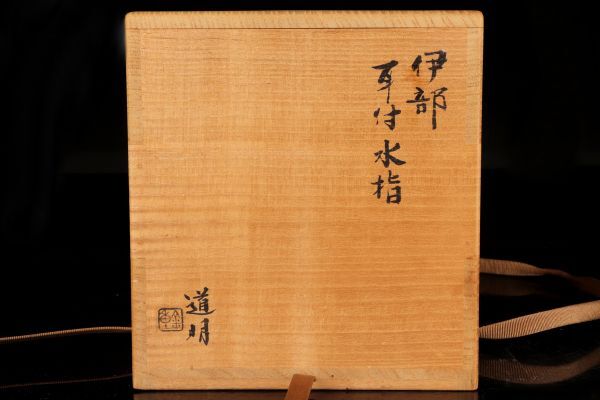 伊部
耳付水指
道明